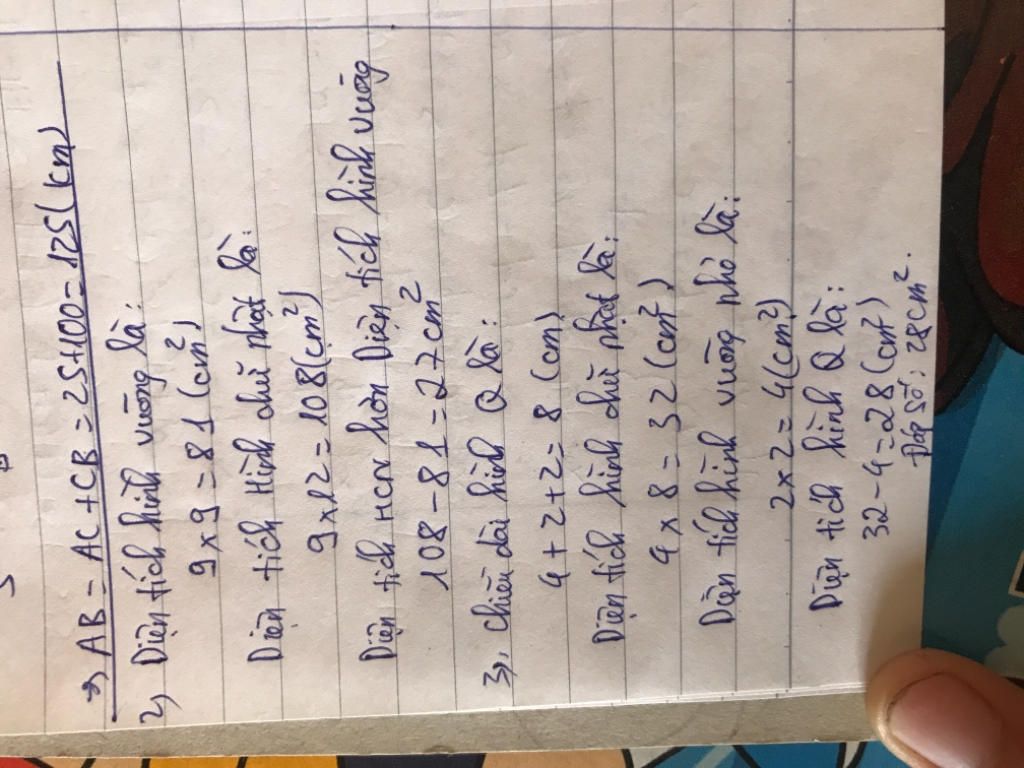 => AB = AC + CB = 25+100 = 125(km)
2) Diện tích hình vuông là:
9 x 9 = 81 (cm²)
Diện tích Hình chữ nhật là:
9 x 12 = 108 (cm²)
Diện tích HCN hơn Diện tích hình vuông
108 - 81 = 27 cm²
3, chiều dài hình Q là:
4 + 2 + 2 = 8 (cm)
Diện tích hình chữ nhật là:
4 x 8 = 32 (cm²)
Diện tích hình vuông nhỏ là:
2 x 2 = 4 (cm²)
Diện tích hình Q là:
32 - 4 = 28 (cm²)
Đáp số: 28cm².